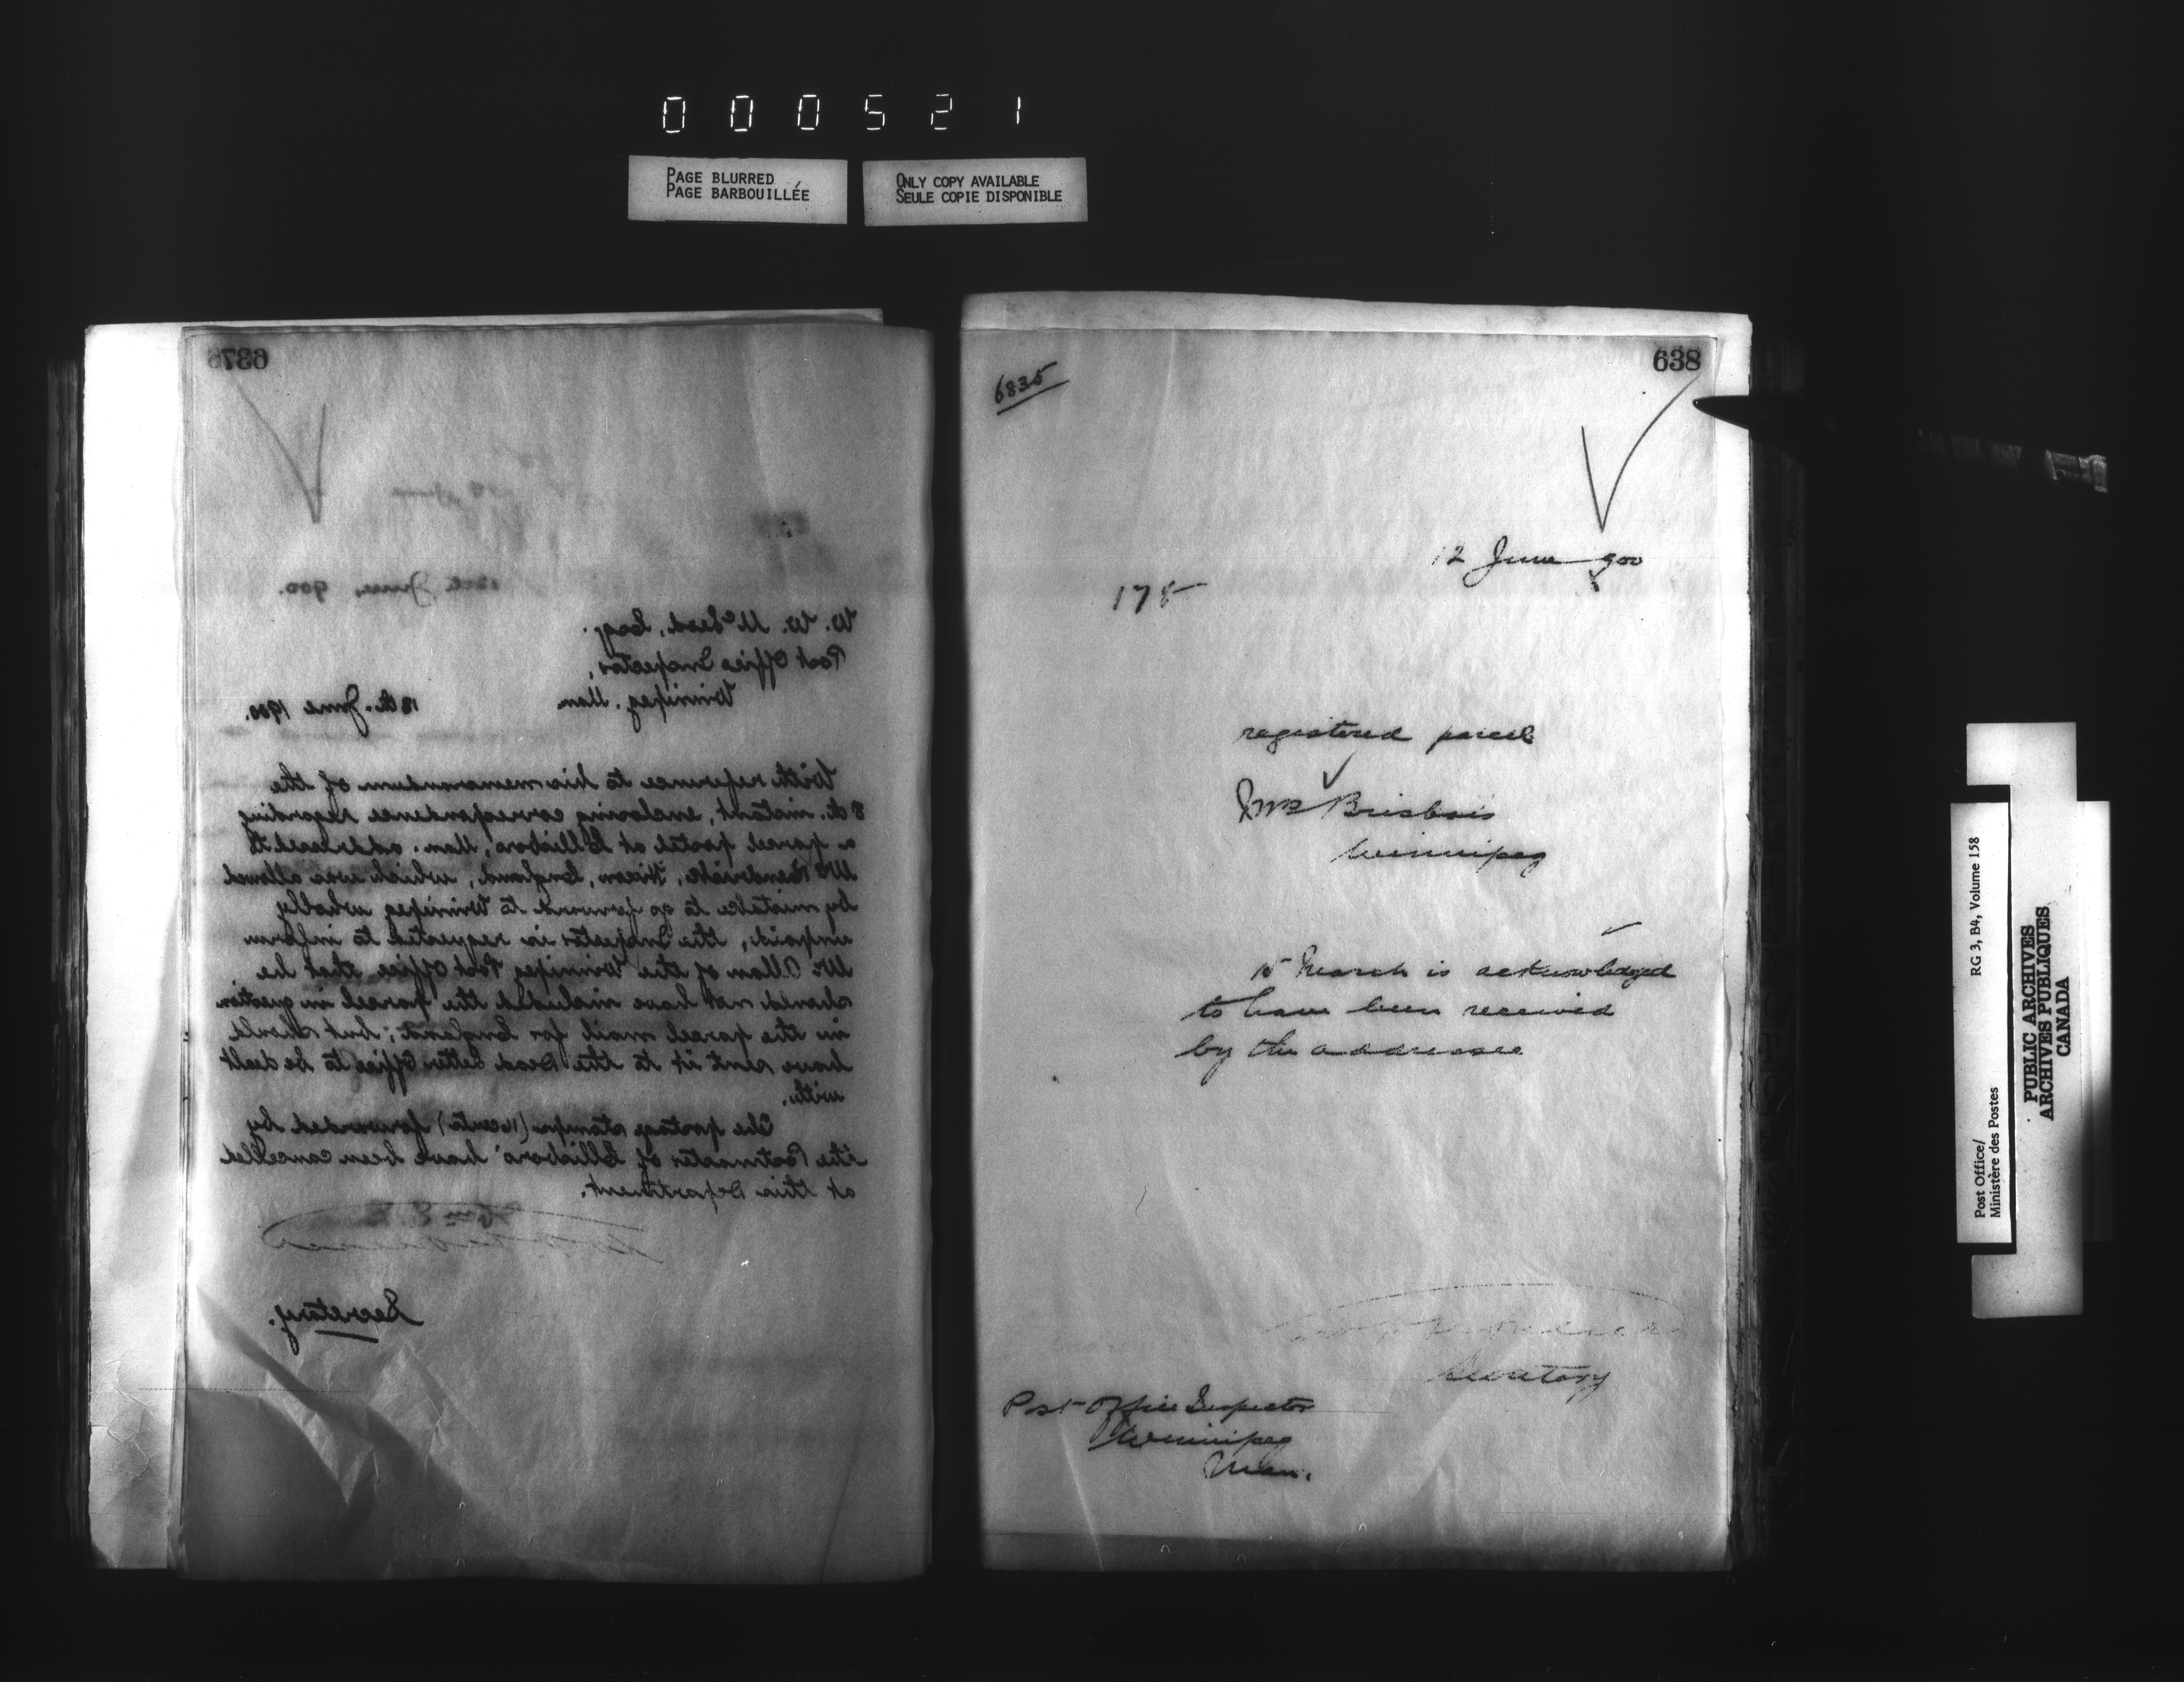 000521
PAGE BLURRED
PAGE BARBOUILLÉE
ONLY COPY AVAILABLE
SEULE COPIE DISPONIBLE
637
12th June, 900.
W. W. McLeod, Esq.
Post Office Inspector,
Winnipeg, Man.
12th. June 1900.
With reference to his memorandum of the
8th. instant, enclosing correspondence regarding
a parcel posted at Ellisboro, Man. addressed to
England, which was allowed
by mistake to go forward to Winnipeg wholly
unpaid, the Inspector is requested to inform
Mr Allan of the Winnipeg Post Office that he
should not have included the parcel in question
in the parcel mail for England; but should
have sent it to the Dead Letter Office to be dealt
with.
The postage stamps forwarded by
the Postmaster of Ellisboro' have been cancelled
at this Department.
Secretary.
638
6835
12 June 900
175
registered parcel
Brisbois
Winnipeg
15 March is acknowledged
to have been received
by the addressee
Secretary
Post Office Inspector
Winnipeg
Man.
Post Office/
Ministère des Postes
RG 3, B4, Volume 158
PUBLIC ARCHIVES
ARCHIVES PUBLIQUES
CANADA